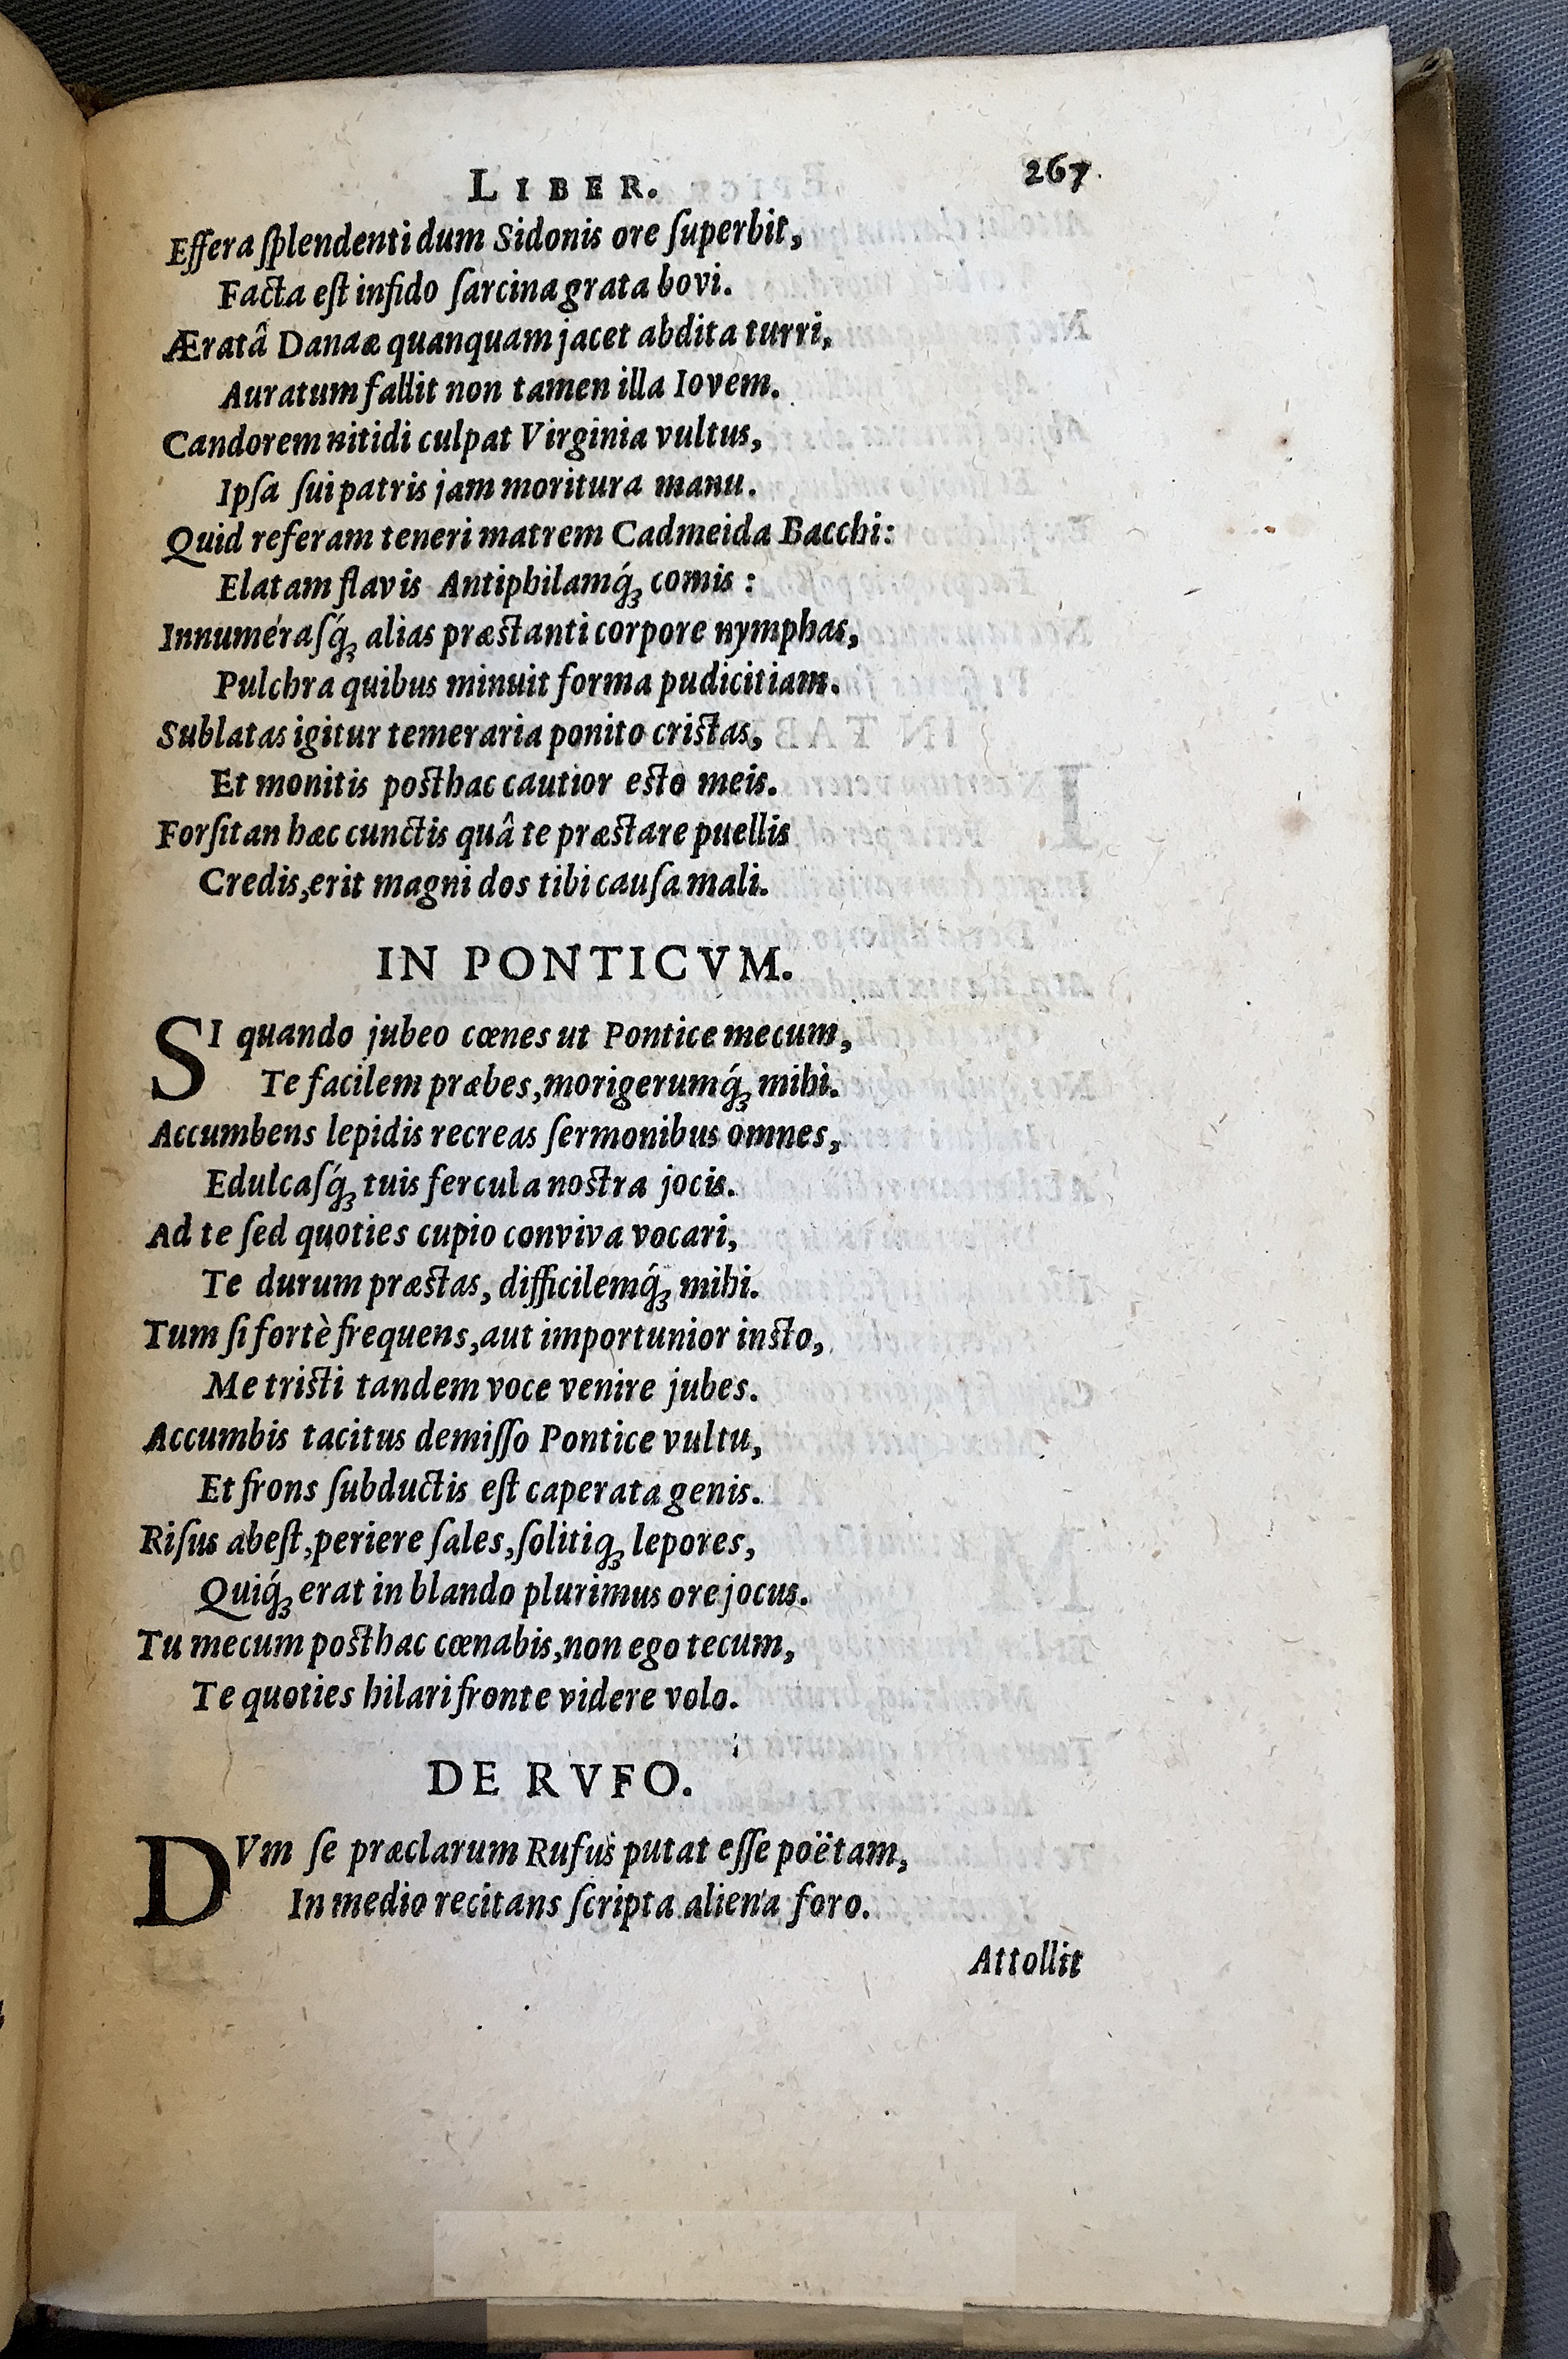 LIBER. 267.
Effera ſplendenti dum Sidonis ore ſuperbit,
Facta eſt infido ſarcina grata bovi.
Æratâ Danaæ quanquam jacet abdita turri,
Auratum fallit non tamen illa Iovem.
Candorem nitidi culpat Virginia vultus,
Ipſa ſui patris jam moritura manu.
Quid referam teneri matrem Cadmeida Bacchi:
Elatam flavis Antiphilamq́ꝫ comis :
Innuméraſq́ꝫ alias præſtanti corpore nymphas,
Pulchra quibus minuit forma pudicitiam.
Sublatas igitur temeraria ponito criſtas,
Et monitis poſthac cautior eſto meis.
Forſitan hæc cunctis quâ te præſtare puellis
Credis, erit magni dos tibi cauſa mali.
IN PONTICVM.
SI quando jubeo cœnes ut Pontice mecum,
Te facilem præbes, morigerumq́ꝫ mihi.
Accumbens lepidis recreas ſermonibus omnes,
Edulcaſq́ꝫ tuis fercula noſtra jocis.
Ad te ſed quoties cupio conviva vocari,
Te durum præſtas, difficilemq́ꝫ mihi.
Tum ſi fortè frequens, aut importunior inſto,
Me triſti tandem voce venire jubes.
Accumbis tacitus demiſſo Pontice vultu,
Et frons ſubductis eſt caperata genis.
Riſus abeſt, periere ſales, ſolitiqꝫ lepores,
Quiq́ꝫ erat in blando plurimus ore jocus.
Tu mecum poſthac cœnabis, non ego tecum,
Te quoties hilari fronte videre volo.
DE RVFO.
DVm ſe præclarum Rufus putat eſſe poëtam,
In medio recitans ſcripta aliena foro.
Attollit